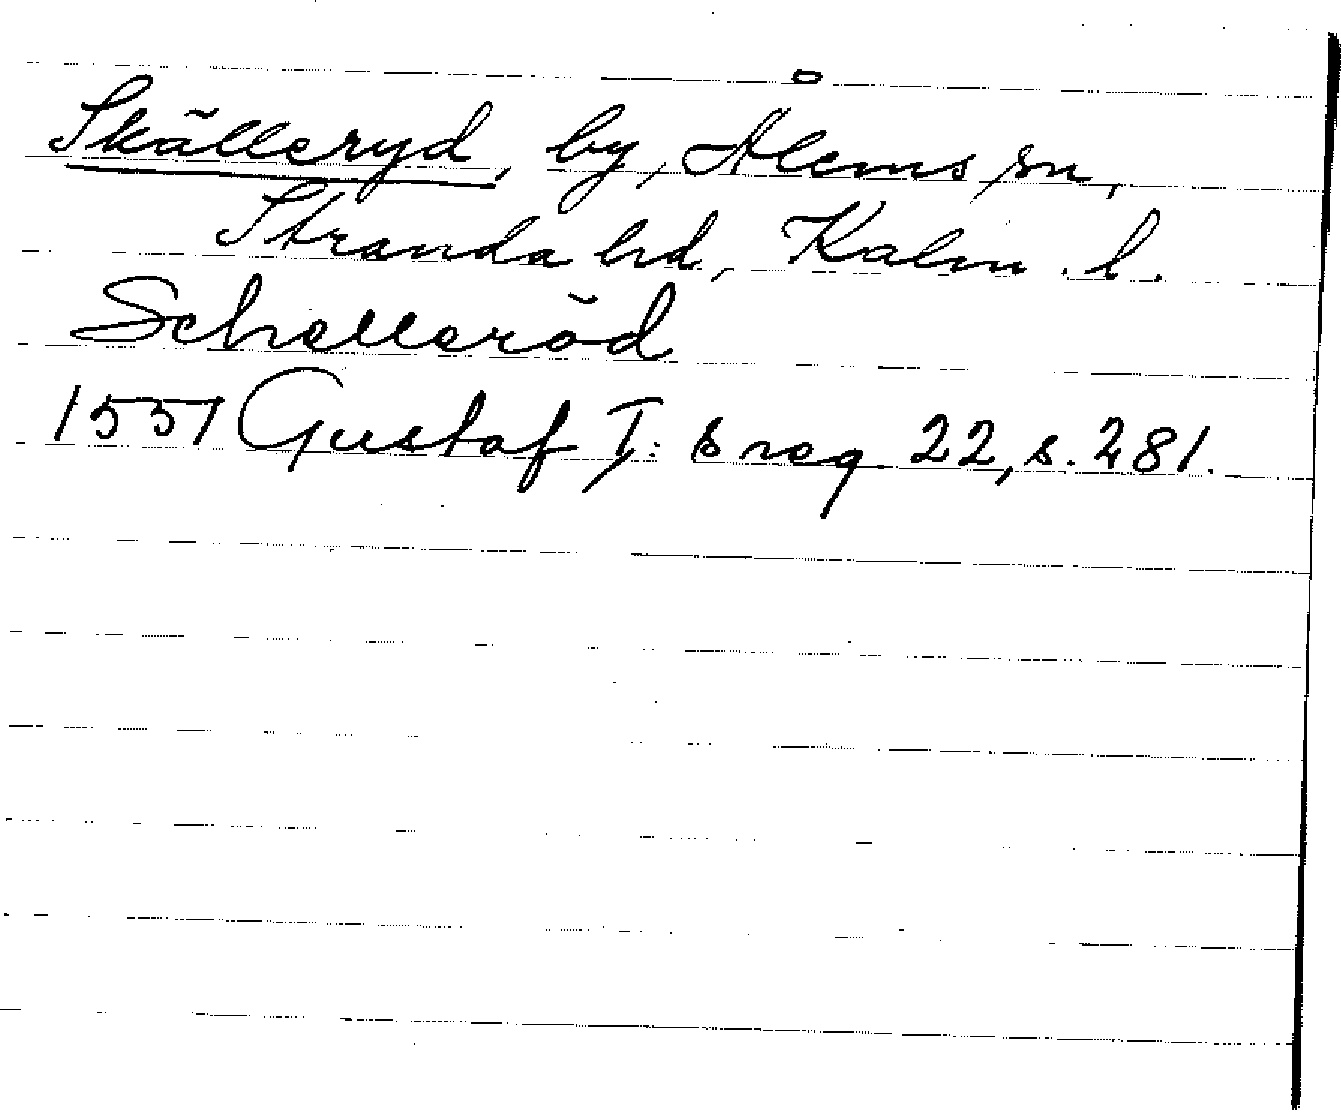 Skälleryd, by, Ålems sn,
Stranda hd, Kalm. l.
Schelleröd
1551 Gustaf I: s reg 22, s. 281.